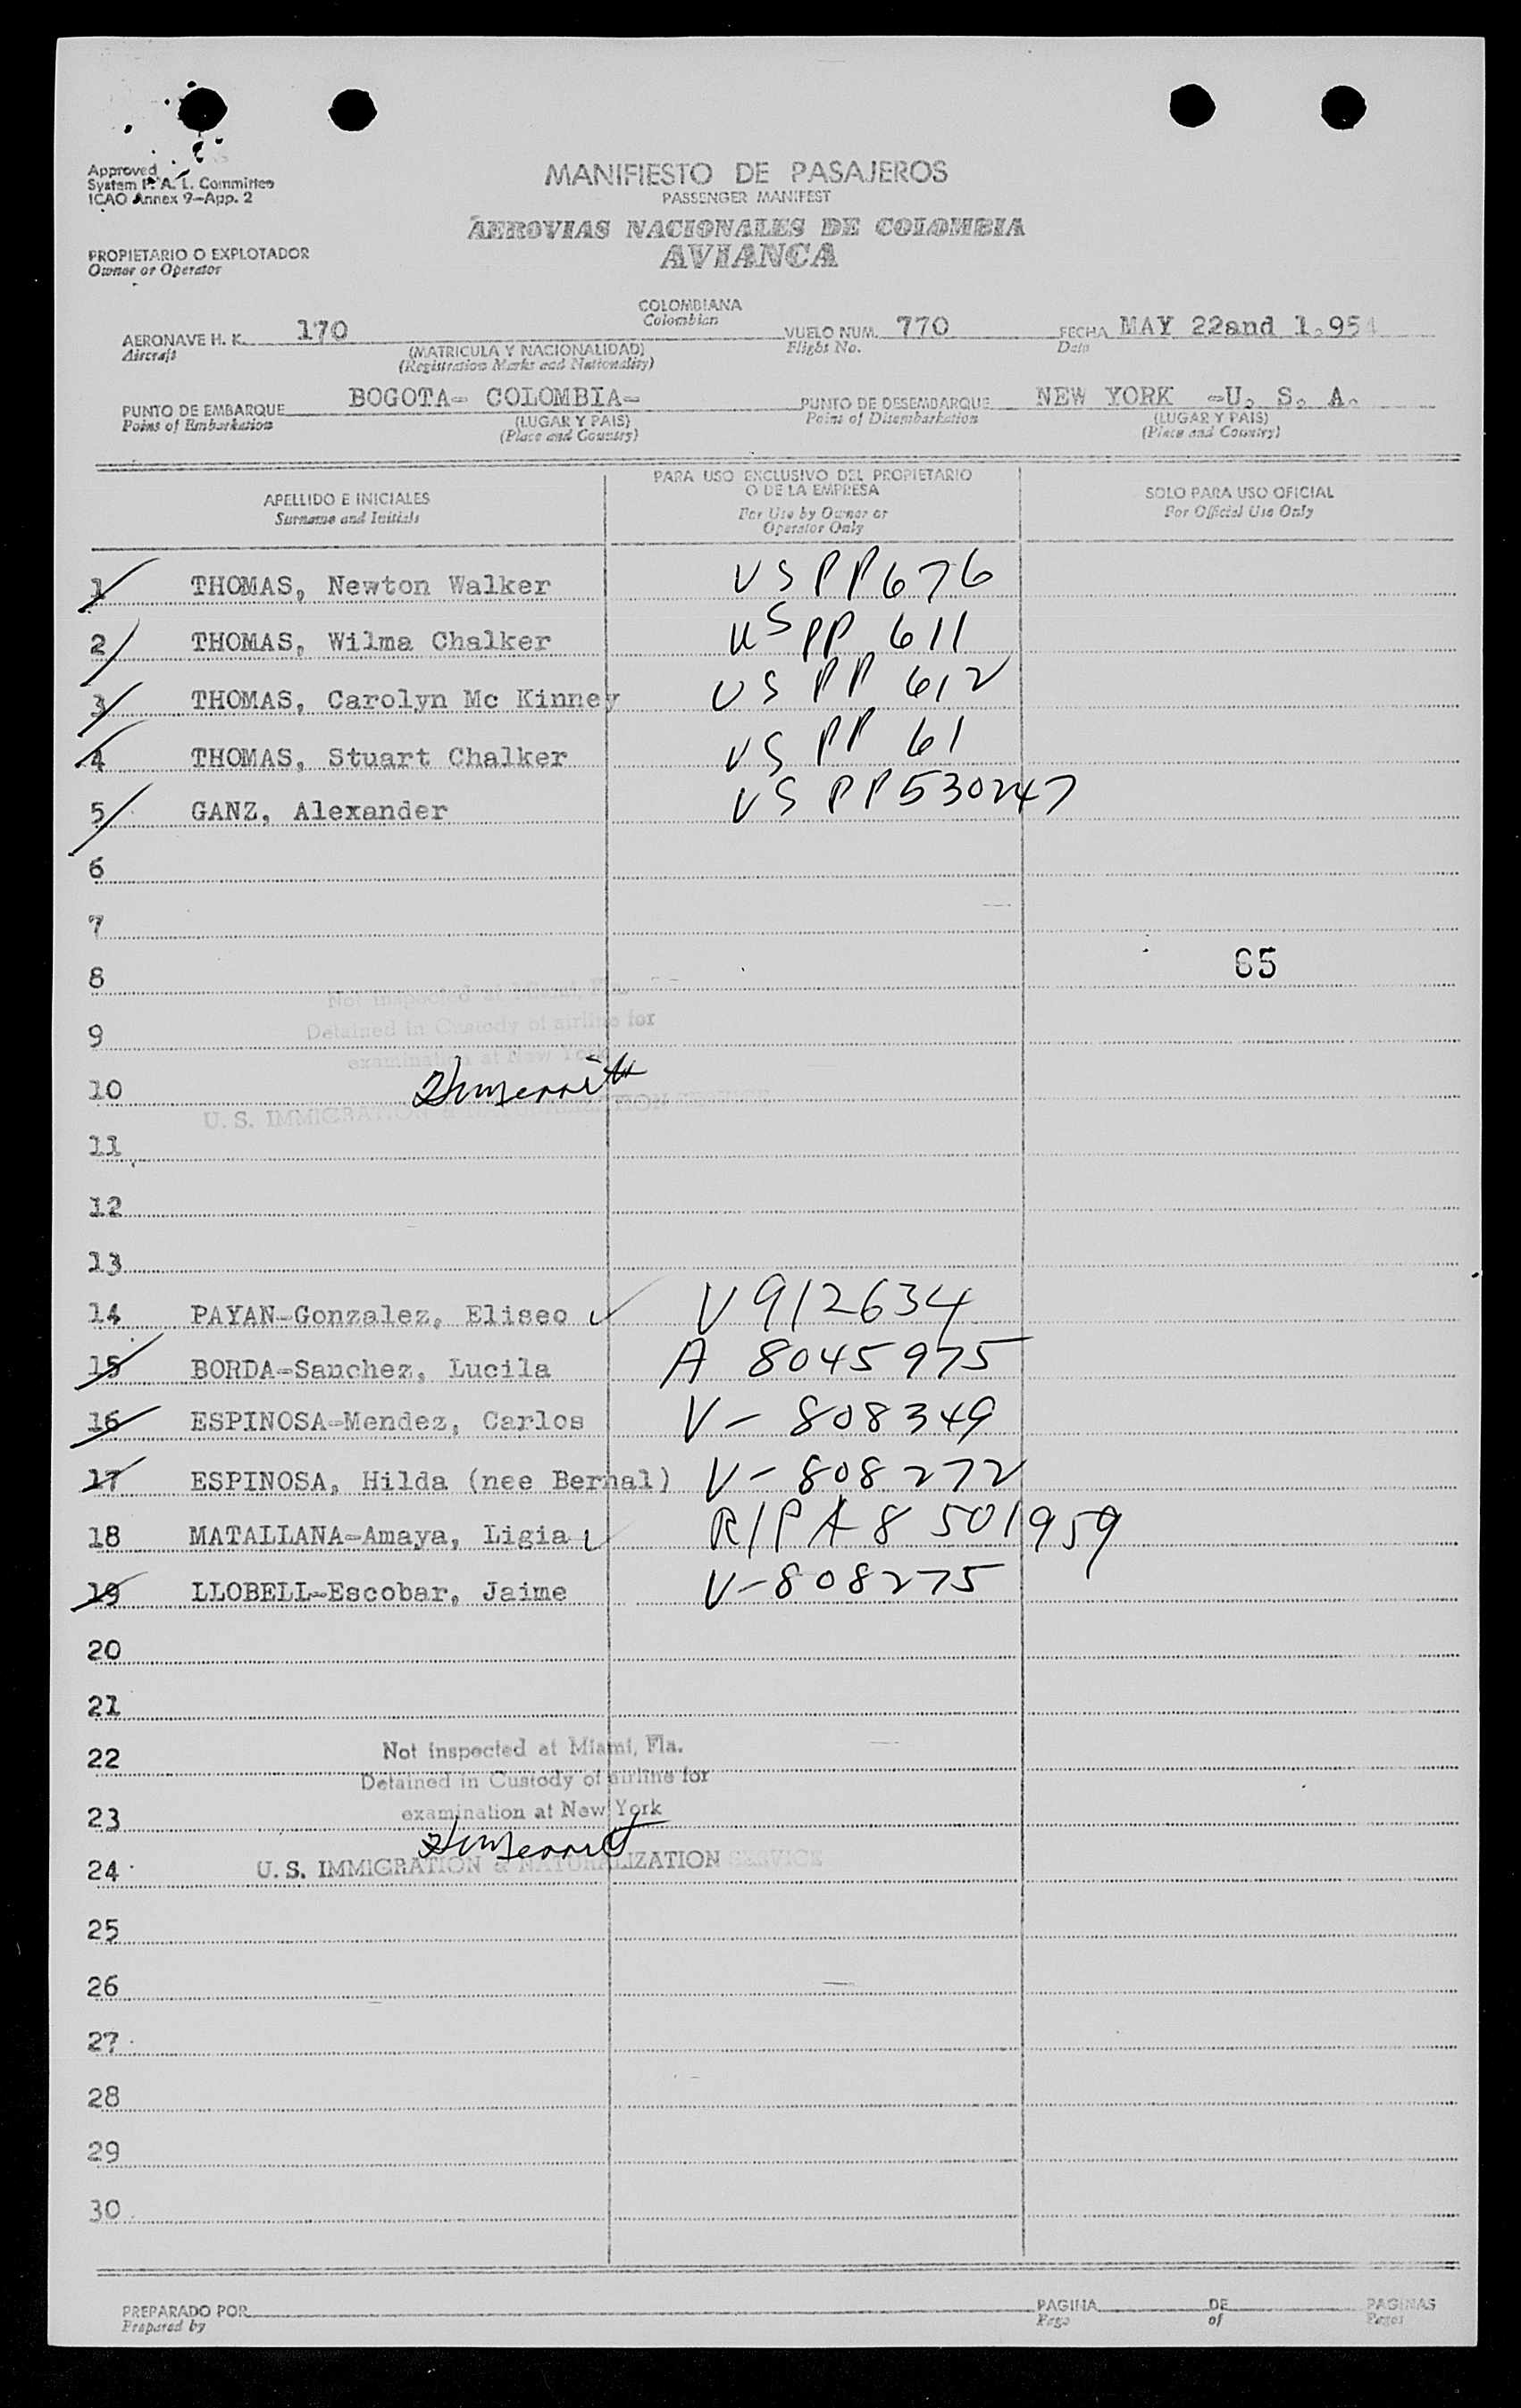 Approved
System F. A. L. Committee
ICAO Annex 9-App. 2
MANIFIESTO DE PASAJEROS
PASSENGER MANIFEST
AEROVIAS NACIONALES DE COLOMBIA
AVIANCA
PROPIETARIO O EXPLOTADOR
Owner or Operator
COLOMBIANA
Colombian
AERONAVE H. K. 170 VUELO NUM. 770 FECHA MAY 22and 1.954
Aircraft (MATRICULA Y NACIONALIDAD) Flight No. Date
(Registration Marks and Nationality)
PUNTO DE EMBARQUE BOGOTA- COLOMBIA- PUNTO DE DESEMBARQUE NEW YORK -U. S. A.
Point of Embarkation (LUGAR Y PAIS) Point of Disembarkation (LUGAR Y PAIS)
(Place and Country) (Place and Country)
APELLIDO E INICIALES
Surname and Initials
PARA USO EXCLUSIVO DEL PROPIETARIO
O DE LA EMPRESA
For Use by Owner or
Operator Only
SOLO PARA USO OFICIAL
For Official Use Only
1 THOMAS, Newton Walker US PP 676
2 THOMAS, Wilma Chalker US PP 611
3 THOMAS, Carolyn Mc Kinney US PP 612
4 THOMAS, Stuart Chalker US PP 61
5 GANZ, Alexander US PP 530247
6
7
8 65
Not inspected at Miami, Fla.
9 Detained in Custody of airline for
examination at New York
10
U. S. IMMIGRATION & NATURALIZATION SERVICE
11
12
13
14 PAYAN-Gonzalez, Eliseo V 912634
15 BORDA-Sanchez, Lucila A 8045975
16 ESPINOSA-Mendez, Carlos V- 808349
17 ESPINOSA, Hilda (nee Bernal) V- 808272
18 MATALLANA-Amaya, Ligia R/P A8 501959
19 LLOBELL-Escobar, Jaime V-808275
20
21
22 Not inspected at Miami, Fla.
Detained in Custody of airline for
23 examination at New York
24 U. S. IMMIGRATION & NATURALIZATION SERVICE
25
26
27
28
29
30
PREPARADO POR PAGINA DE PAGINAS
Prepared by Page of Pages